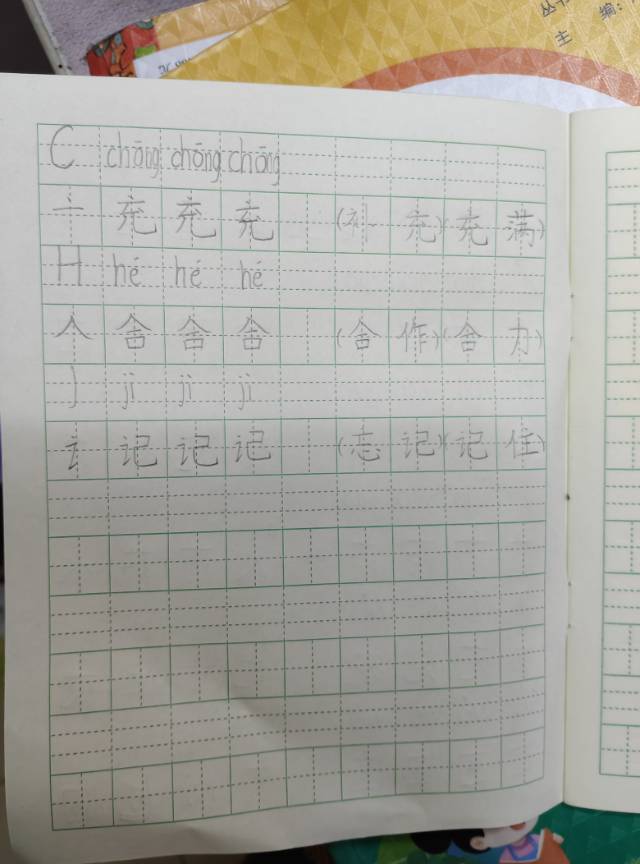 主 编:
C chōng chōng chōng
亠 充 充 充 ( 充)(充 满)
H hé hé hé
人 合 合 合 (合 作)(合 力)
J jì jì jì
讠 记 记 记 (忘 记)(记 住)